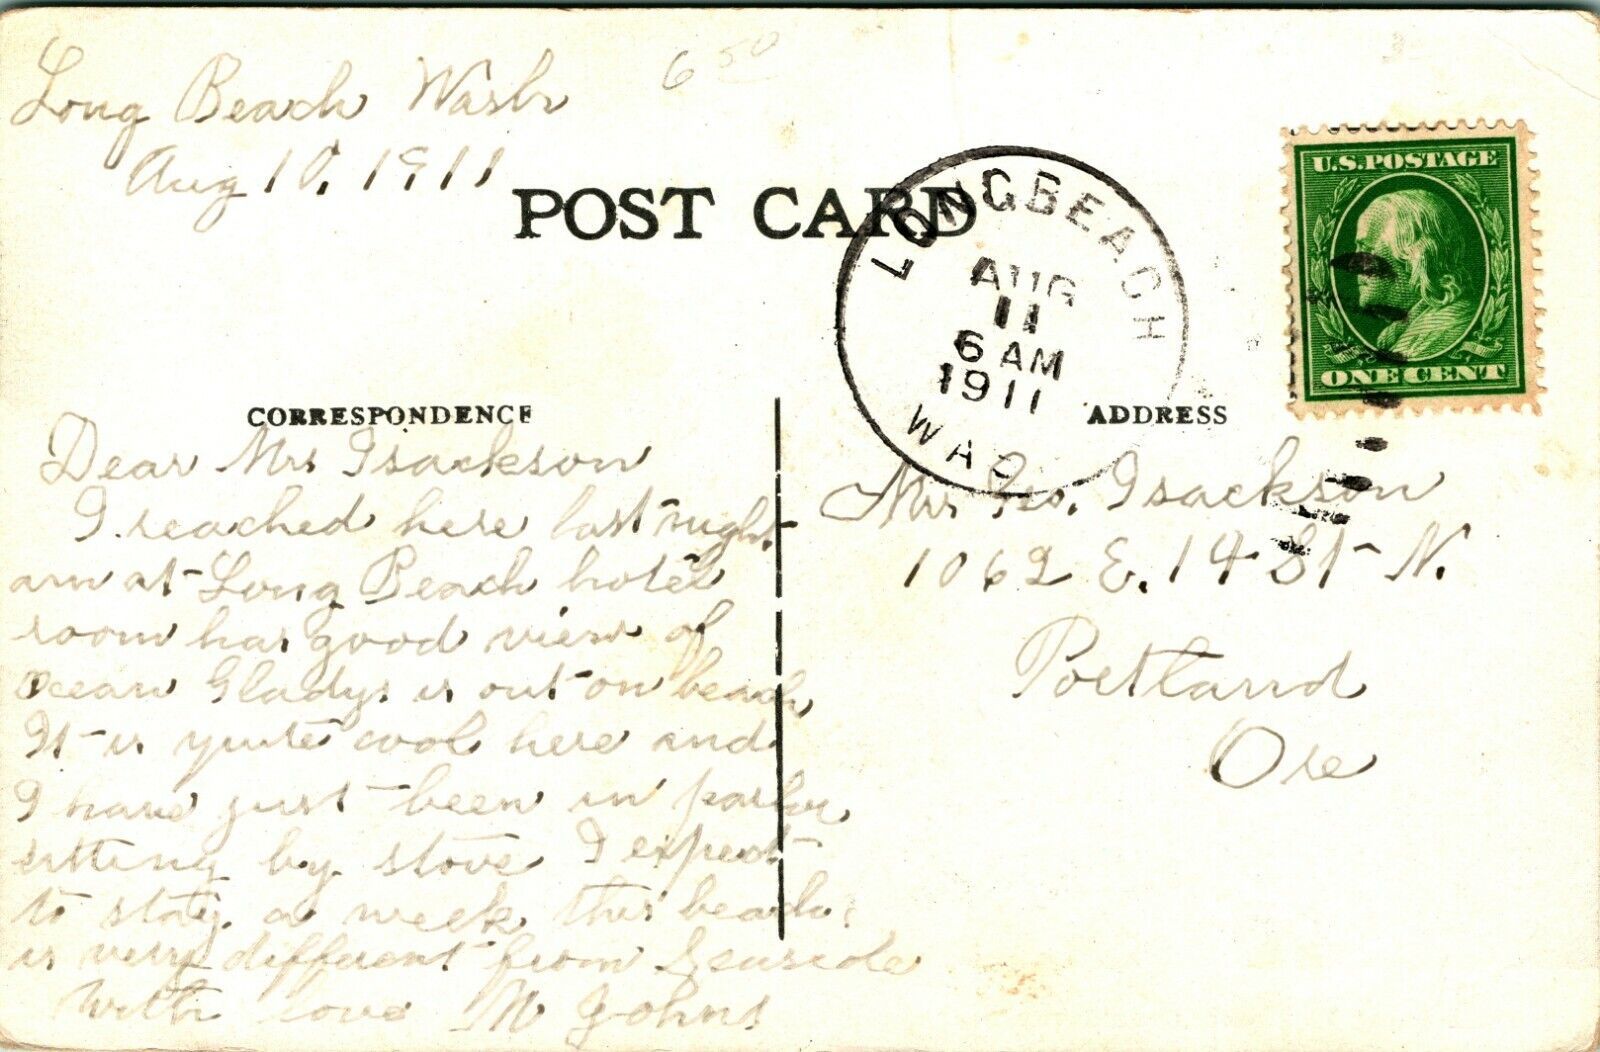 Long Beach Wash
6 50
Aug 10, 1911
POST CARD
LONGBEACH
AUG
11
6 AM
1911
WAS
U.S. POSTAGE
ONE CENT
CORRESPONDENCE
Dear Mrs Isackson
I reached here last night
am at Long Beach hotel
room has good view of
ocean Gladys is out on beach
It is quite cool here and
I have just been in parlor
sitting by stove I expect
to stay a week this beach
is very different from Seaside
With love M Johns
ADDRESS
Mrs Geo. Isackson
1062 E. 14 St N.
Portland
Ore